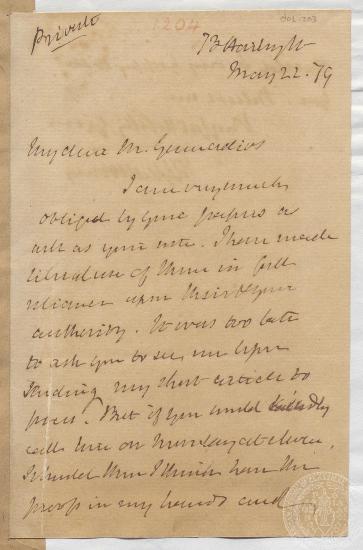 Private
1204
001-203
73 Harley St
May 22. 79
My dear Mr. Gennadios
I am very much
obliged by your papers as
well as your note. I have made
liberal use of them in full
reliance upon their & your
authority. It was too late
to ask you to see me upon
sending my short article to
press. But if you would kindly
call here on Monday at eleven,
I should then I think have the
proofs in my hands and